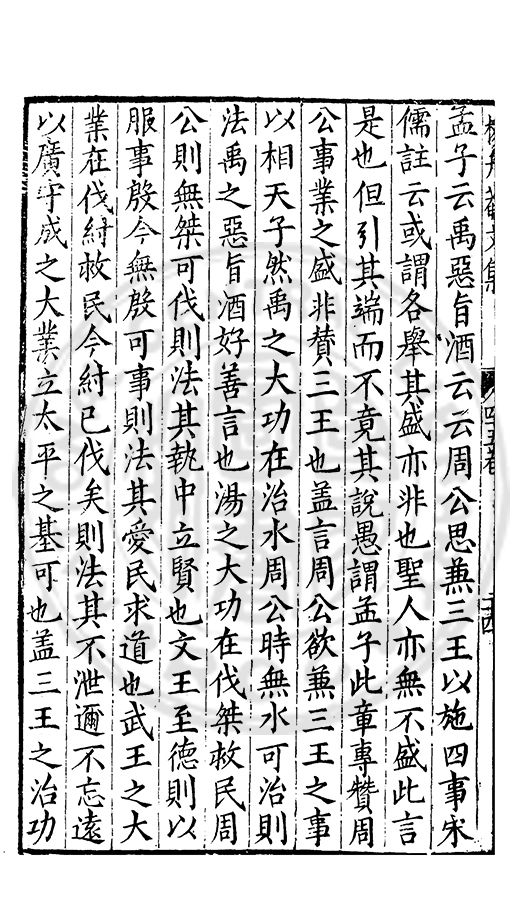 孟子云禹惡旨酒云云周公思兼三王以施四事宋
儒註云或謂各舉其盛亦非也聖人亦無不盛此言
是也但引其端而不竟其說愚謂孟子此章專贊周
公事業之盛非賛三王也盖言周公欲兼三王之事
以相天子然禹之大功在治水周公時無水可治則
法禹之惡旨酒好善言也湯之大功在伐桀救民周
公則無桀可伐則法其執中立賢也文王至德則以
服事殷今無殷可事則法其愛民求道也武王之大
業在伐紂救民今紂已伐矣則法其不泄邇不忘遠
以廣守成之大業立太平之基可也盖三王之治功